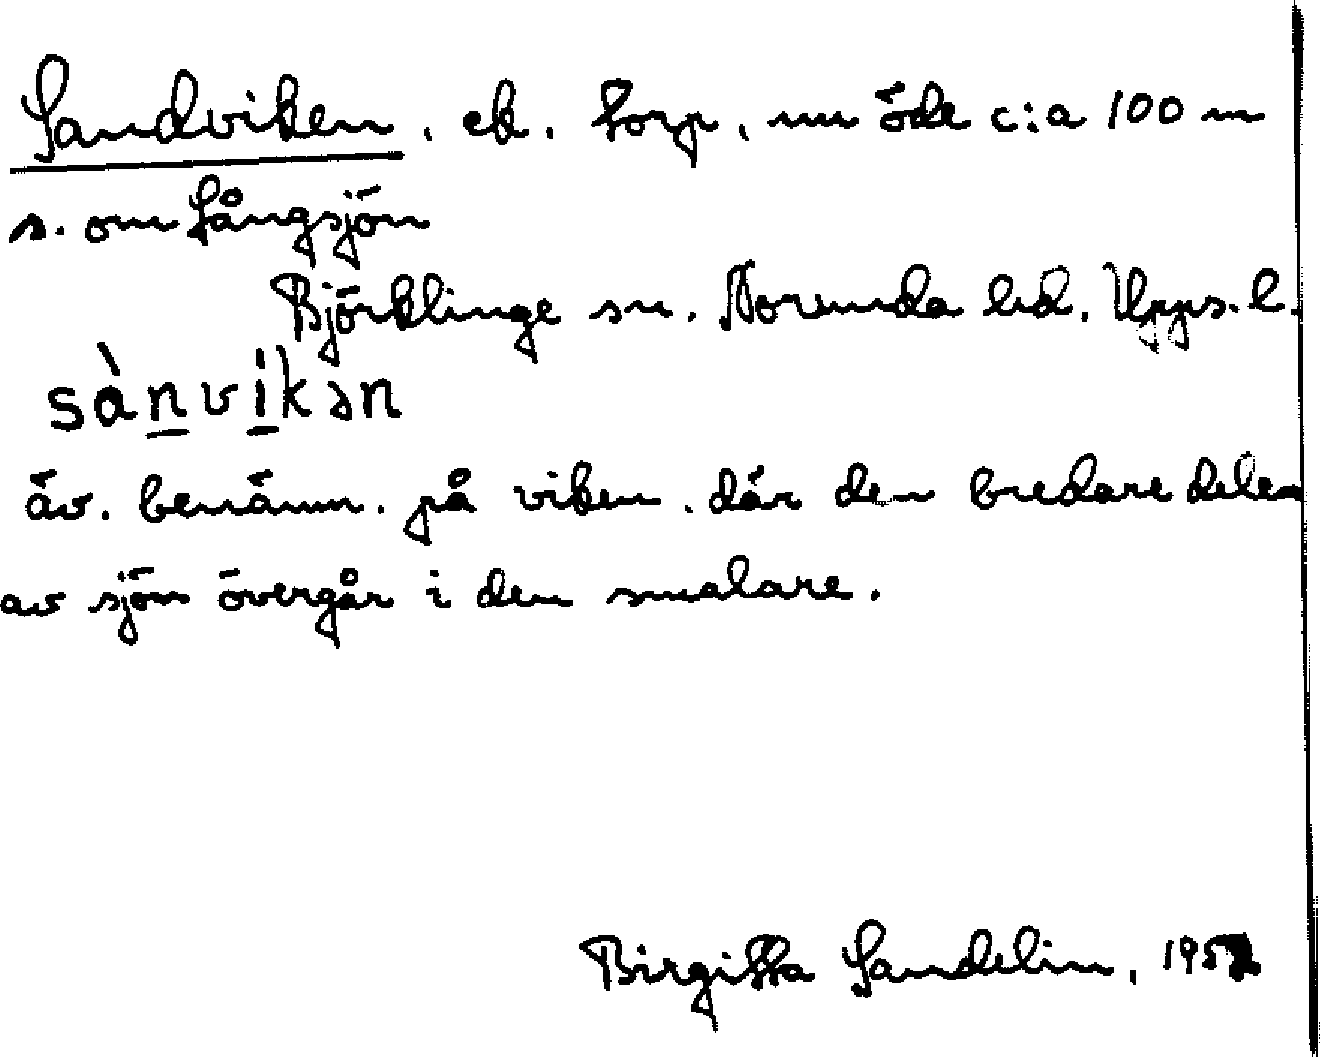 Sandviken, ek. torp, nu öde c:a 100 m
s. om Långsjön
Björklinge sn. Norunda hd. Upps. l.
sànvíkən
äv. benämn. på viken, där den bredare delen
av sjön övergår i den smalare.
Birgitta Sandelin, 1952